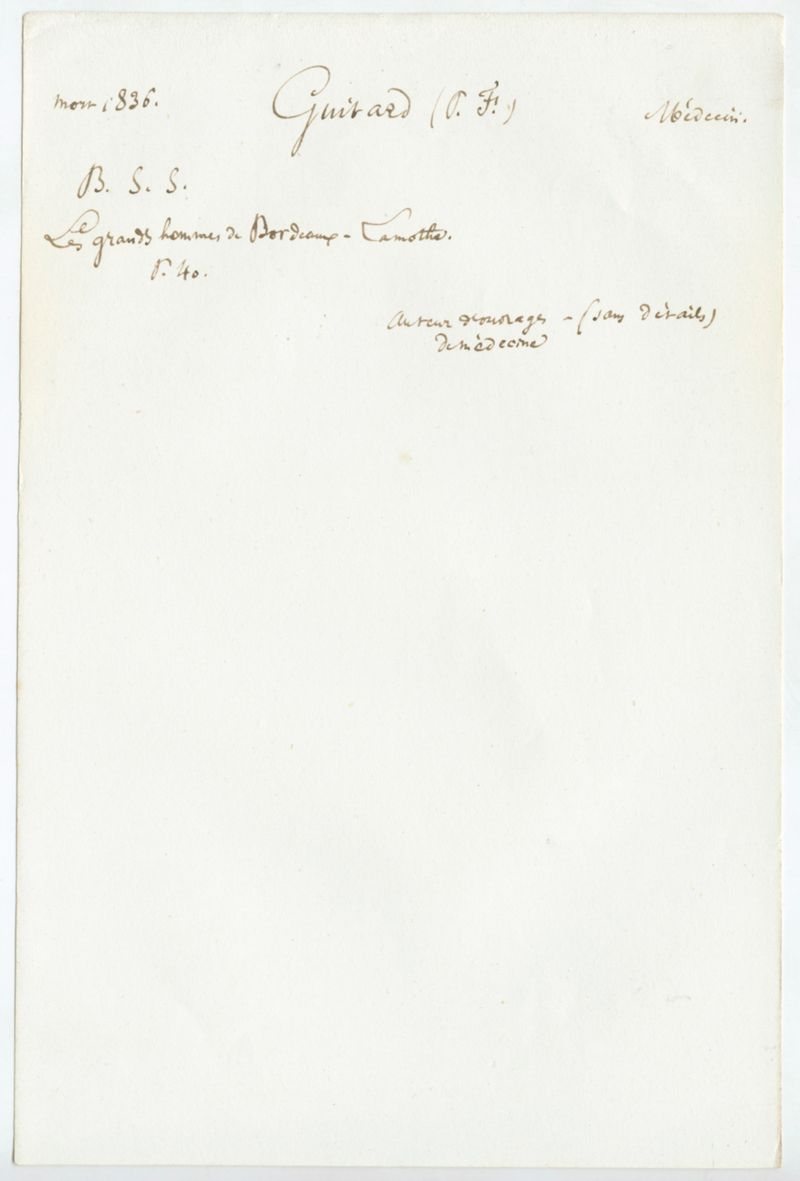 mort 1836. Guitard (P. F.) Médecin.
B. S. S.
Les grands hommes de Bordeaux - Lamothe.
P. 40.
Auteur d'ouvrages - (sans détails)
de médecine